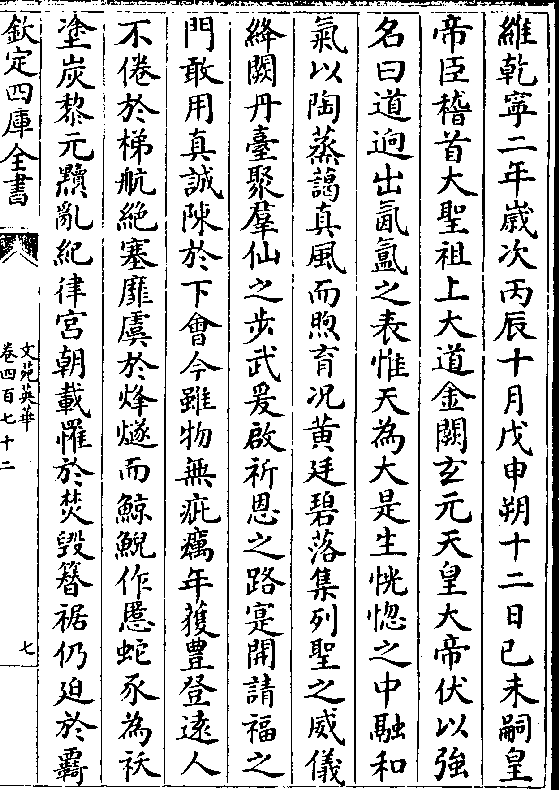 維乾寧二年歲次丙辰十月戊申朔十二日己未嗣皇
帝臣稽首大聖祖上大道金闕玄元天皇大帝伏以強
名曰道逈出氤氳之表惟天為大是生恍惚之中融和
氣以陶蒸藹真風而煦育况黄廷碧落集列聖之威儀
絳闕丹臺聚羣仙之步武爰啟祈恩之路寔開請福之
門敢用真誠陳於下會今雖物無疵癘年獲豐登遠人
不倦於梯航絶塞靡虞於烽燧而鯨鯢作慝蛇豕為祅
塗炭黎元黷亂紀律宮朝載罹於焚毀簪裾仍迫於霸
欽定四庫全書
文苑英華
卷四百七十二
七